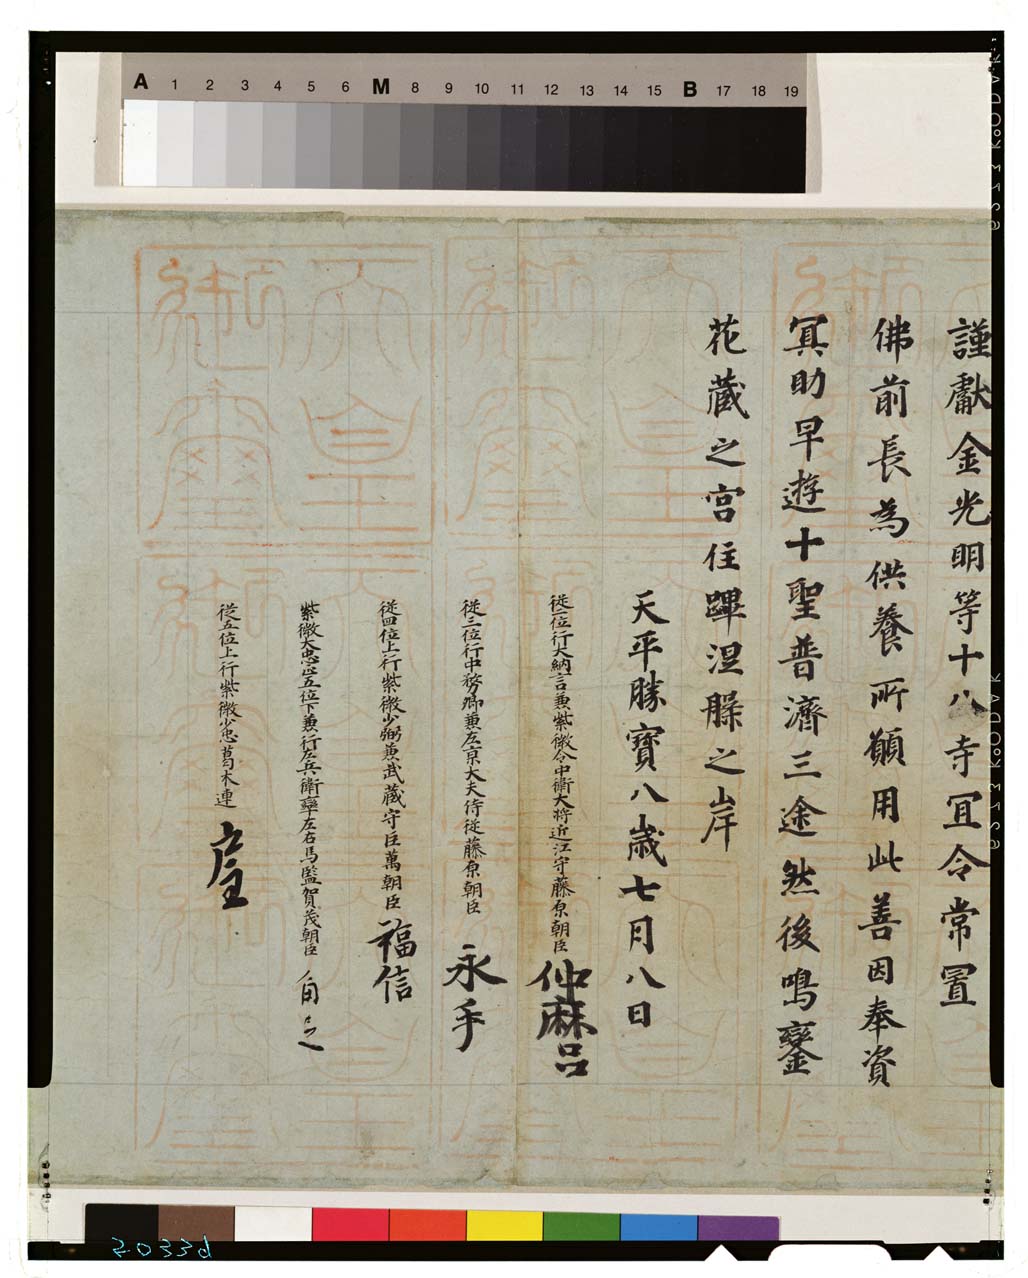 A 1 2 3 4 5 6 M 8 9 10 11 12 13 14 15 B 17 18 19
謹獻金光明等十八寺冝令常置
佛前長為供養所願用此善因奉資
冥助早遊十聖普濟三途然後鳴鑾
花蔵之宮住蹕涅槃之岸
天平勝寶八歳七月八日
従二位行大納言兼紫微令中衛大将近江守藤原朝臣仲麻呂
従三位行中務卿兼左京大夫侍従藤原朝臣永手
従四位上行紫微少弼兼武蔵守巨萬朝臣福信
紫微大忠正五位下兼行左兵衛率左右馬監賀茂朝臣角足
従五位上行紫微少忠葛木連戸主
天皇御璽
天皇御璽
天皇御璽
天皇御璽
天皇御璽
天皇御璽
5033d